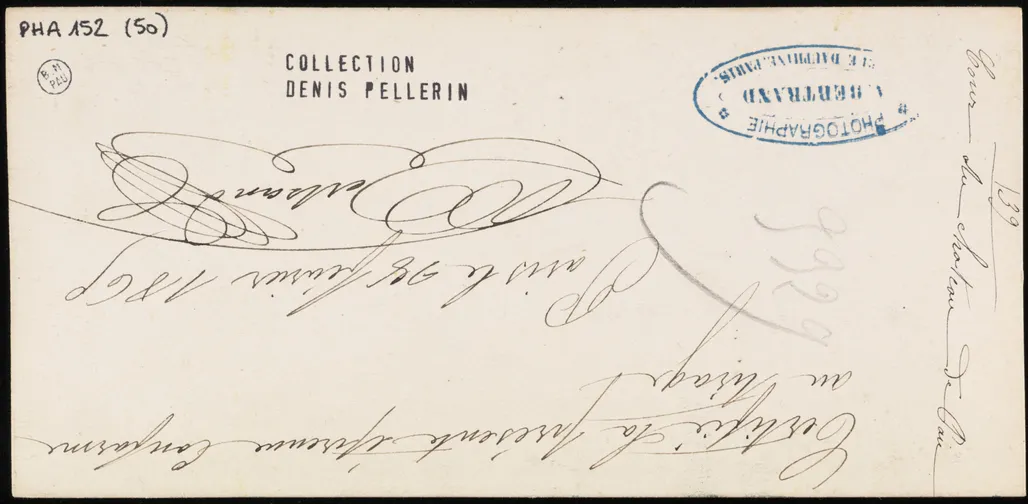 PHA 152 (50)
B. M
PAU
COLLECTION
DENIS PELLERIN
PHOTOGRAPHIE
A. BERTRAND
DAUPHINE. PARIS.
139
Cour du chateau de Pau
Certifié la présente épreuve conforme
au tirage
Paris le 28 février 186
Bertrand